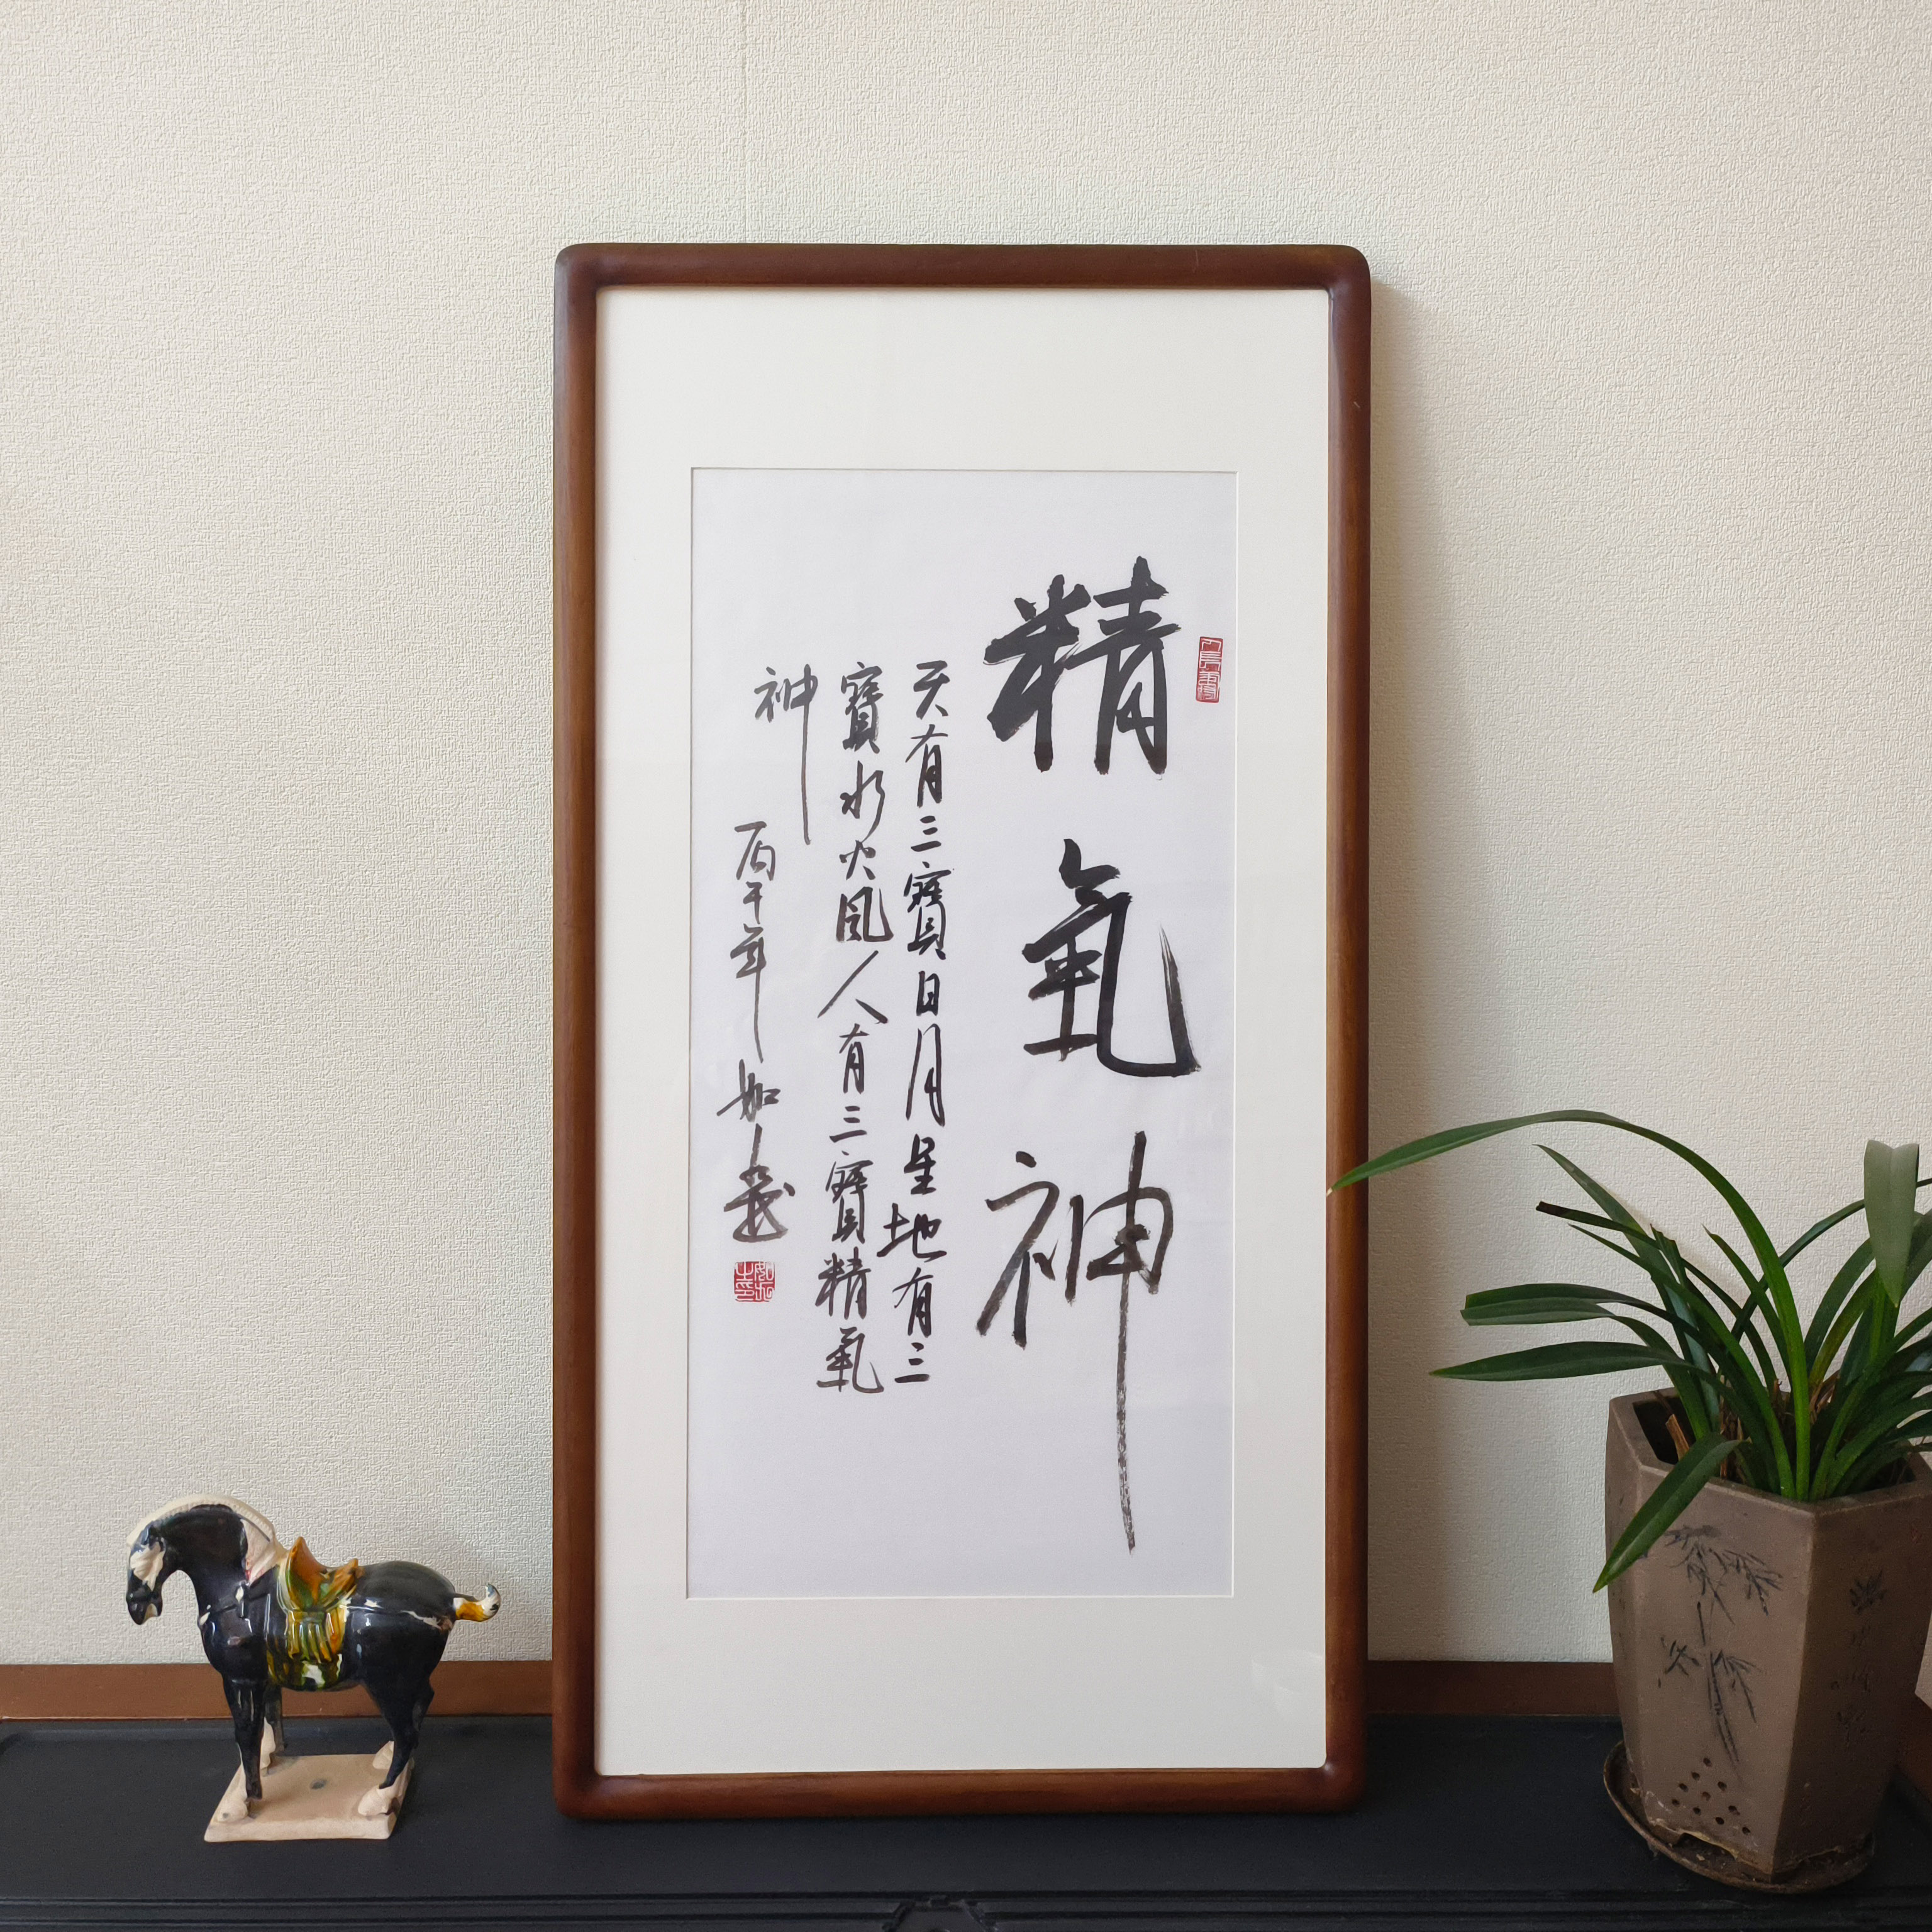 精氣神
天有三寶日月星地有三
寶水火風人有三寶精氣
神
丙午年